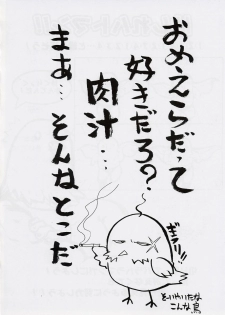 おめえらだって
好きだろ?
肉汁…
まあ…そんなとこだ
ギラリ!!
そいやいたな
こんな鳥